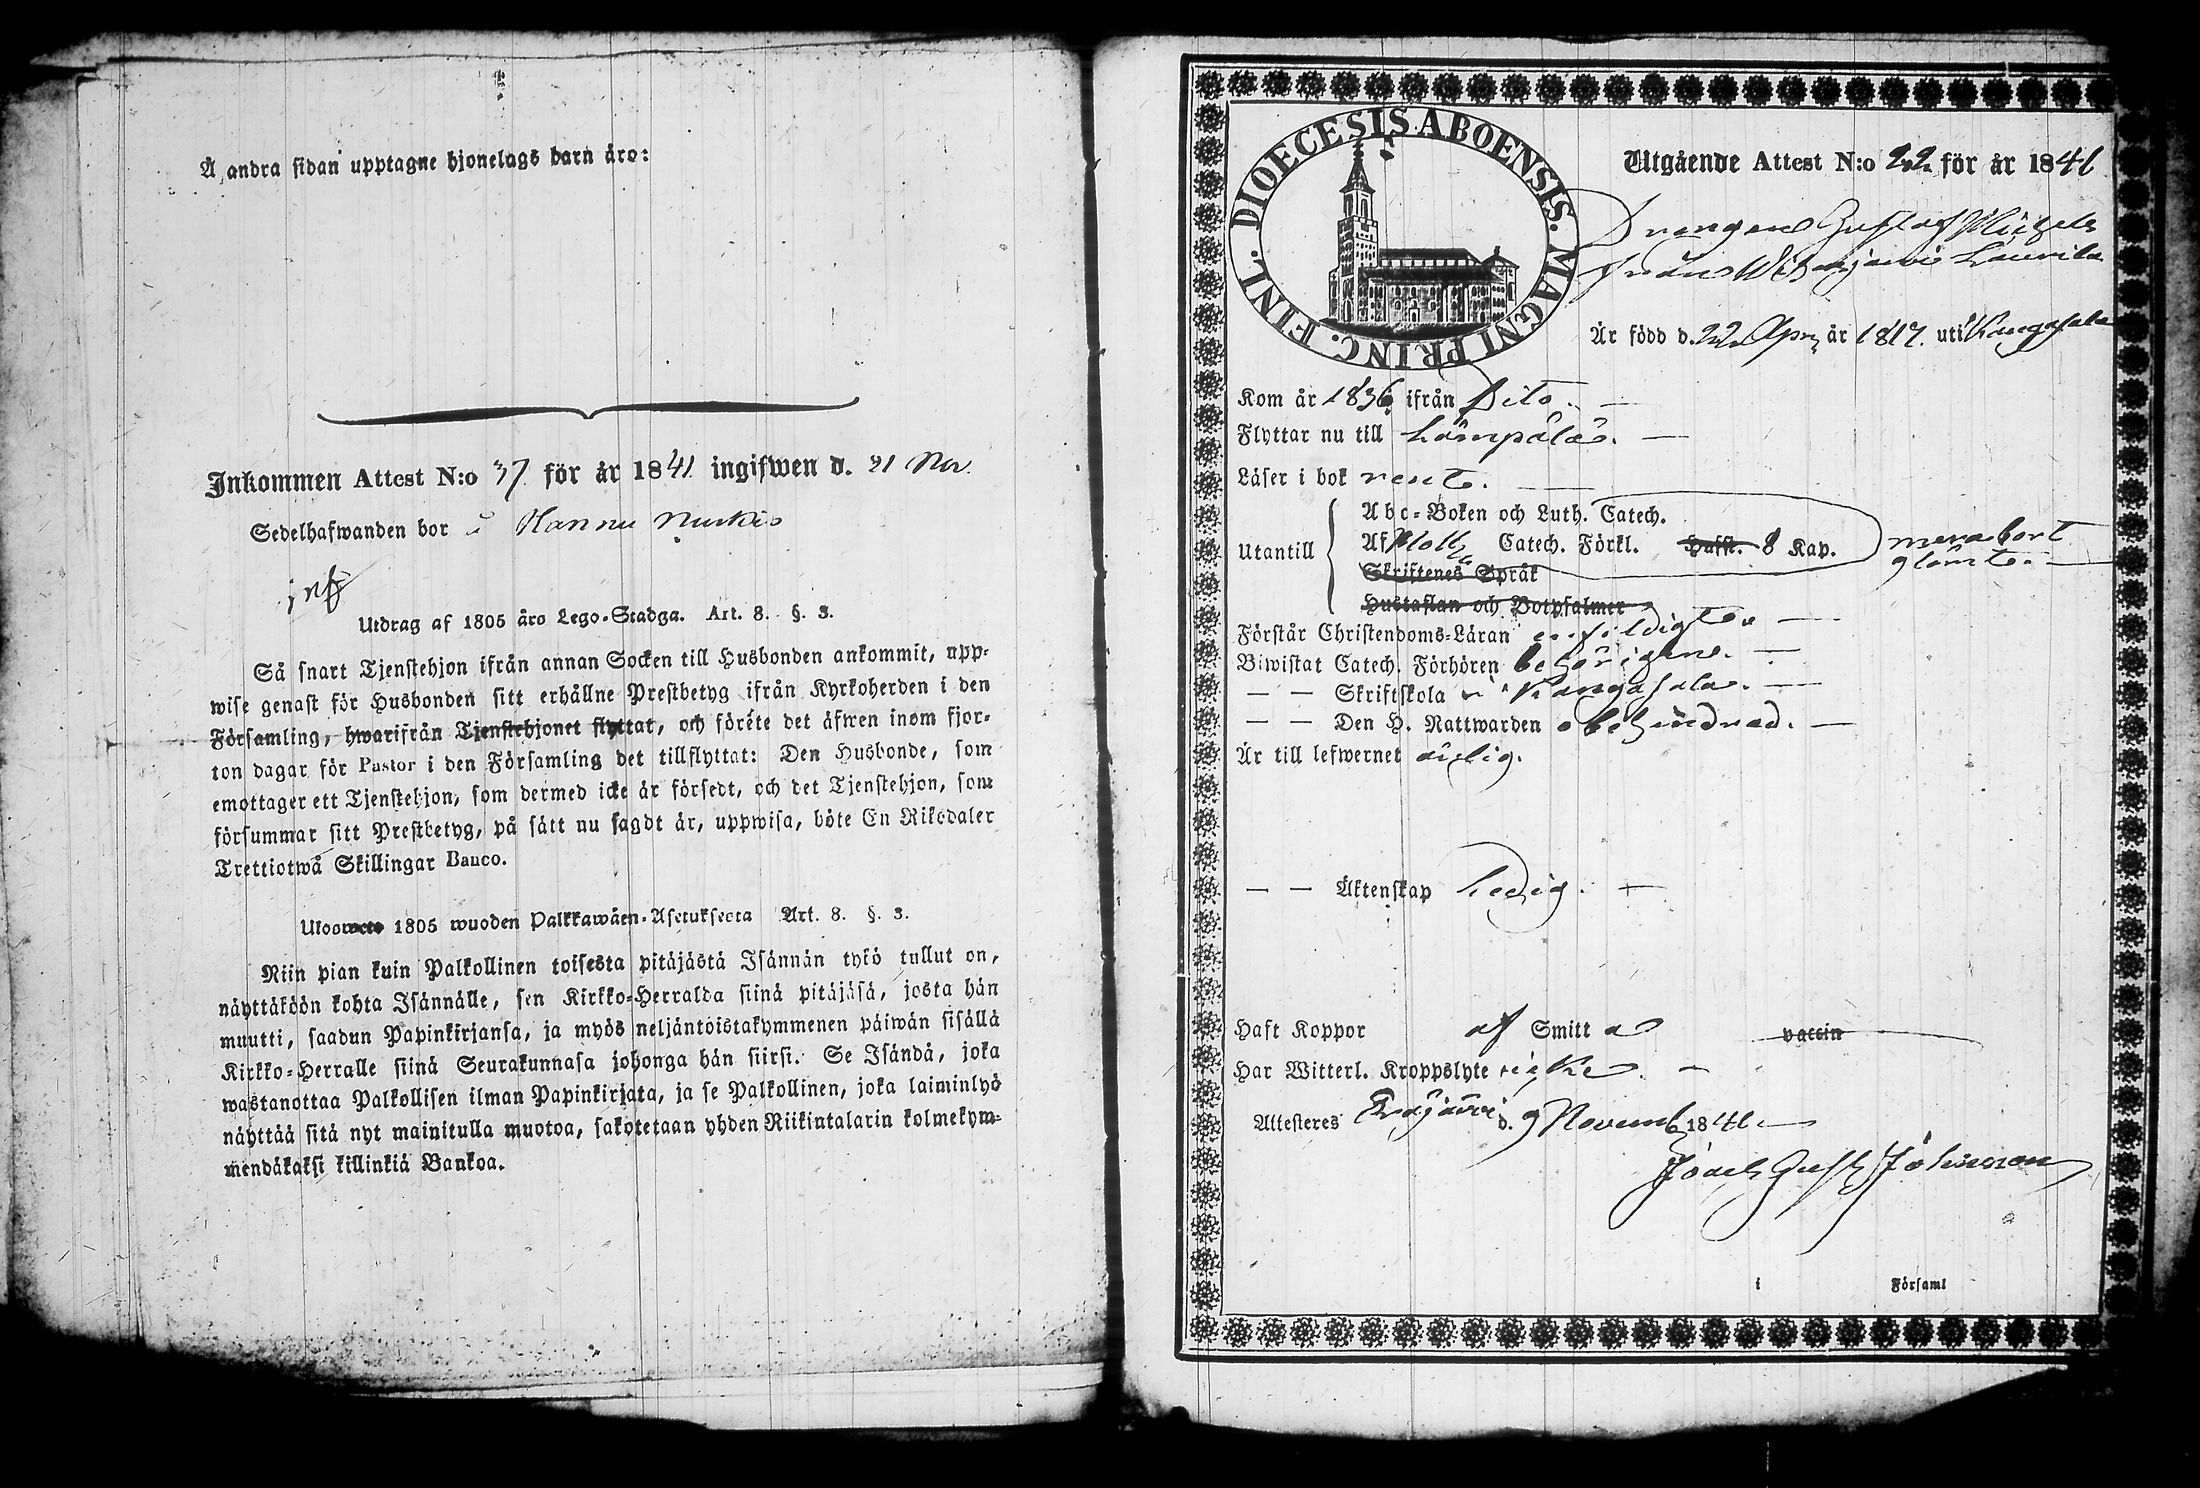 Å andra sidan upptagne hjonelags barn äro:
Inkommen Attest N:o 37 för år 1841 ingifwen d. 21 Nov.
Sedelhafwanden bor i Hannu Nurkis
inf
Utdrag af 1805 års Lego-Stadga. Art. 8. §. 3.
Så snart Tjenstehjon ifrån annan Socken till Husbonden ankommit, upp-
wise genast för Husbonden sitt erhållne Prestbetyg ifrån Kyrkoherden i den
Församling, hwarifrån Tjenstehjonet flyttat, och förete det äfwen inom fjor-
ton dagar för Pastor i den Församling det tillflyttat: Den Husbonde, som
emottager ett Tjenstehjon, som dermed icke är försedt, och det Tjenstehjon, som
försummar sitt Prestbetyg, på sätt nu sagdt är, uppwisa, böte En Riksdaler
Trettiotwå Skillingar Banco.
Ulosweto 1805 wuoden Palkkawäen-Asetuksesta Art. 8. §. 3.
Niin pian kuin Palkollinen toisesta pitäjästä Isännän tykö tullut on,
näyttäköön kohta Isännälle, sen Kirkko-Herralda siinä pitäjäsä, josta hän
muutti, saadun Papinkirjansa, ja myös neljäntoistakymmenen päiwän sisällä
Kirkko-Herralle siinä Seurakunnasa johonga hän siirsi. Se Isändä, joka
wastanottaa Palkollisen ilman Papinkirjata, ja se Palkollinen, joka laiminlyö
näyttää sitä nyt mainitulla muotoa, sakotetaan yhden Riikintalarin kolmekym-
mendäkaksi killinkiä Bankoa.
DIOECESIS ABOENSIS. MAGNI PRINC. FINL.
Utgående Attest N:o 22 för år 1841
Drengen Gustaf
från Laurila
Är född d. 22 Apr. år 1817. uti Kangasala
Kom år 1836 ifrån Dito.
Flyttar nu till Lämpälä.
Läser i bok rent.
Abc-Boken och Luth. Catech.
Utantill Af Catech. Förkl. Hufst. 8 Kap. mera bort
glömt.
Skriftenes Språk
Hustaflan och Botpsalmer
Förstår Christendoms-Läran enfaldigt.
Biwistat Catech. Förhören behörigen.
— — Skriftskola i Kangasala.
— — Den H. Nattwarden obehindrad.
Är till lefwernet ärlig.
— — Äktenskap ledig.
Haft Koppor af Smitta vaccin
Har Witterl. Kroppslyte icke.
Attesteres d. 9 Novemb 1841
Gust.
i Församl